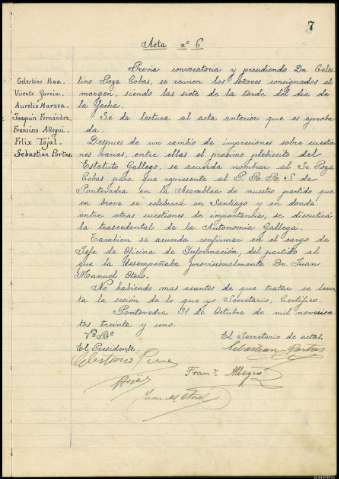 7
Acta nº 6
Previa convocatoria y presidiendo Dn Celes-
tino Poza Cobas, se reunen los señores consignados al
margen, siendo las siete de la tarde del dia de
la fecha.
Celestino Poza.
Vicente García.
Aurelio
Joaquin Fernández
Francisco Allegui.
Felix Tajal.
Sebastián Portas
Se da lectura al acta anterior que es aproba-
da.
Despues de un cambio de impresiones sobre cuestio-
nes varias, entre ellas el proximo plebiscito del
Estatuto Gallego, se acuerda nombrar al Sr Poza
Cobas para que represente al P. R. R. S. de
Pontevedra en la Asamblea de nuestro partido que
en breve se celebrará en Santiago y en donde
entre otras cuestiones de importancia, se discutirá
la trascedental de la Autonomia Gallega.
Tambien se acuerda confirmar en el cargo de
Jefe de Oficina de Información del partido al
que la desempeñaba provisionalmente Dn Juan
Manuel Otero.
No habiendo mas asuntos de que tratar se levan-
ta la sesión de lo que yo Secretario, Certifico.
Pontevedra 31 de Octubre de mil novecien-
tos treinta y uno.
Vº Bº
El Presidente
El Secretario de actas.
Celestino Poza
Sebastian Portas
Franco Allegui
Juan M Otero